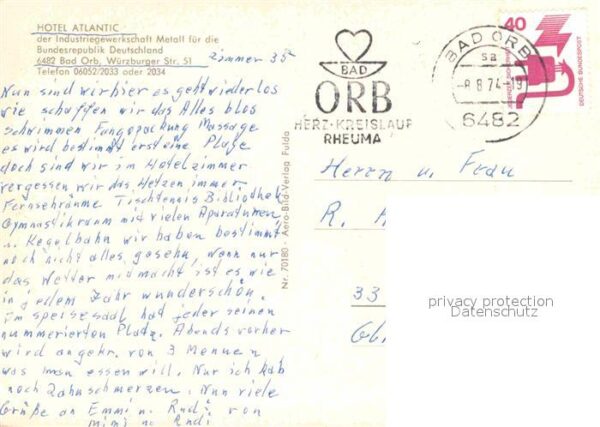 HOTEL ATLANTIC
der Industriegewerkschaft Metall für die
Bundesrepublik Deutschland
6482 Bad Orb, Würzburger Str. 51
Telefon 06052/2033 oder 2034
Zimmer 35
Nun sind wir hier es geht wieder los
wie schaffen wir das Alles blos
schwimmen Fangopackung Massage
es wird bestimmt erst eine Plage
doch sind wir im Hotelzimmer
vergessen wir das Hetzen immer
Fernsehräume Tischtennis Bibliothek
Gymnastikraum mit vielen Aparaturen
u. Kegelbahn wir haben bestimmt
noch nicht alles gesehn, wenn nur
das Wetter mitmacht ist es wie
in jedem Jahr wunderschön.
Im speisesaal hat jeder seinen
nummerierten Platz. Abends vorher
wird angekr. von 3 Menuen
was man essen will. Nur ich hab
noch Zahnschmerzen. Nun viele
Grüße an Emmi u. Rudi von
Mimi u. Rudi
Nr. 70180 - Aero-Bild-Verlag Fulda
BAD
ORB
HERZ-KREISLAUF
RHEUMA
BAD ORB
sa
-8.8.74-19
6482
40
JEDERZEIT SICHERHEIT
DEUTSCHE BUNDESPOST
Herrn u. Frau
R.
33
privacy protection
Datenschutz